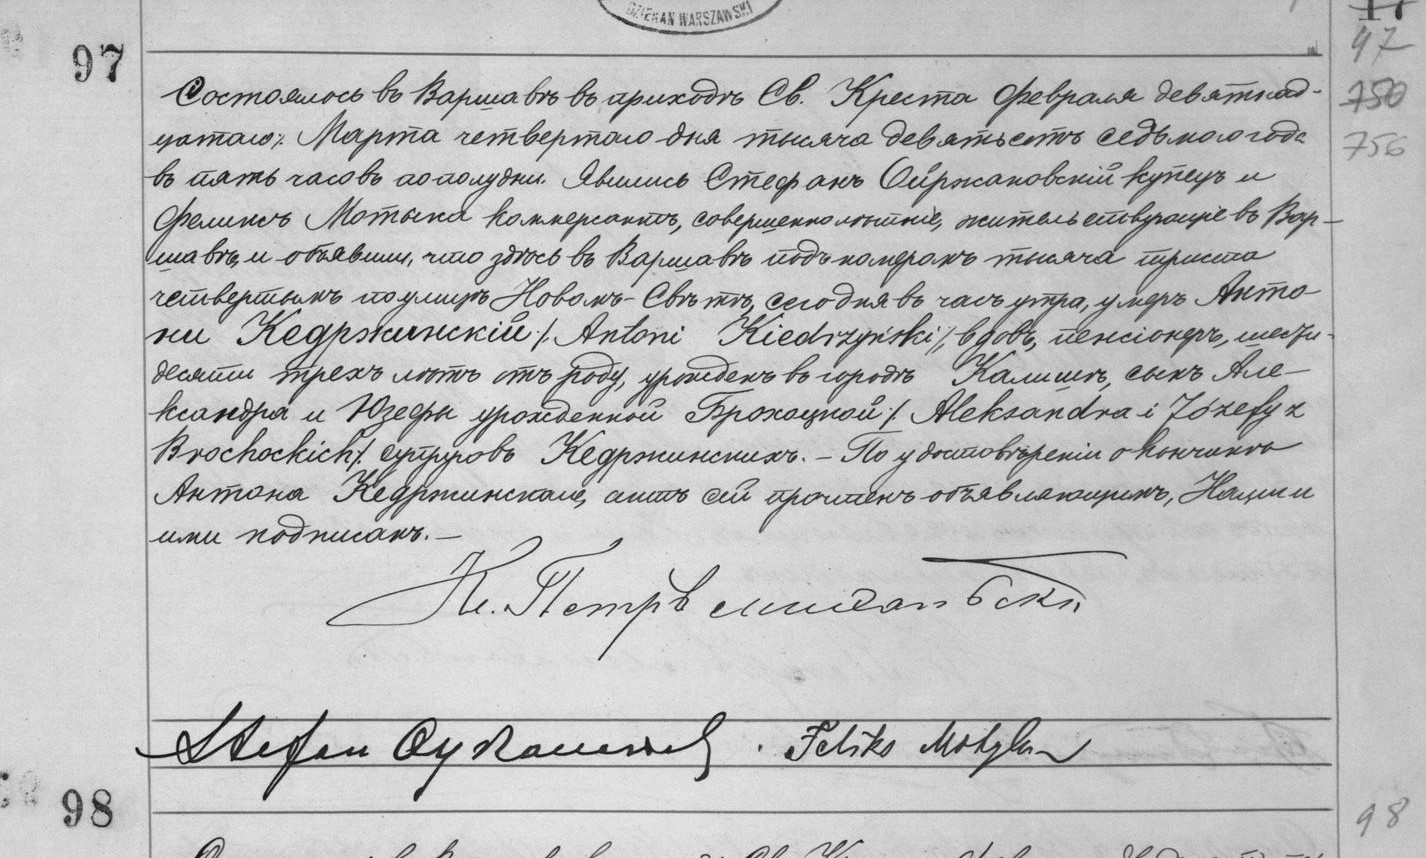 DZIEKAN WARSZAWSKI
17
97
97
Состоялось въ Варшавѣ въ приходѣ Св. Креста Февраля девятнад-
750
цатаго /: Марта четвертаго дня тысяча девятьсотъ седьмого года
756
въ пять часовъ пополудни. Явились Стефанъ Ойржановскій купецъ и
Феликсъ Мотыка коммерсантъ, совершеннолѣтніе, жительствующіе въ Вар-
шавѣ, и объявили, что здѣсь въ Варшавѣ подъ номеромъ тысяча триста
четвертымъ по улицѣ Новомъ-Свѣтѣ, сегодня въ часъ утра, умеръ Анто
ни Кедржинскій /: Antoni Kiedrzyński /: вдовъ, пенсіонеръ, шести-
десяти трехъ лѣтъ отъ роду, урожденъ въ городѣ Калишѣ, сынъ Але-
ксандра и Юзефы урожденной Брохоцкой /: Aleksandra i Józefy z
Brochockich /: супруговъ Кедржинскихъ. – По удостовѣреніи о кончинѣ
Антона Кедржинскаго, актъ сей прочтенъ объявляющимъ, Нами и
ими подписанъ. –
Кс. Петръ
Stefan Feliks Motyka
98
98